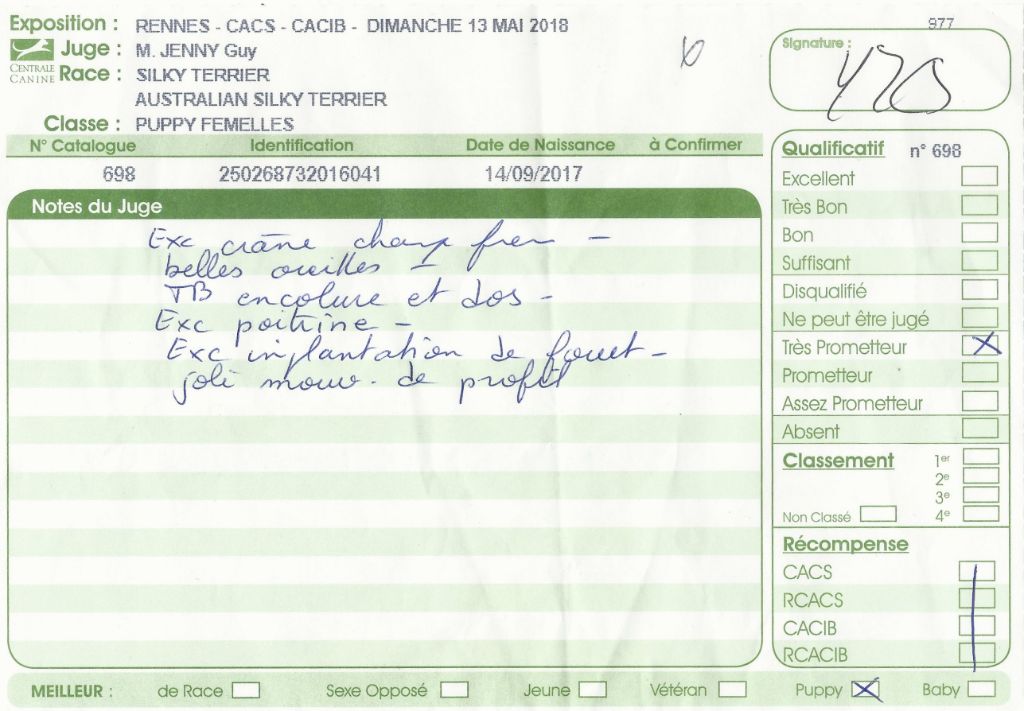 Exposition : RENNES - CACS - CACIB - DIMANCHE 13 MAI 2018
977
Juge : M. JENNY Guy
Signature :
CENTRALE CANINE
Race : SILKY TERRIER
AUSTRALIAN SILKY TERRIER
Classe : PUPPY FEMELLES
N° Catalogue Identification Date de Naissance à Confirmer
698 250268732016041 14/09/2017
Notes du Juge
Exc crâne
belles oreilles -
TB encolure et dos -
Exc poitrine -
Exc implantation de fouet -
joli mouv. de profil
Qualificatif n° 698
Excellent
Très Bon
Bon
Suffisant
Disqualifié
Ne peut être jugé
Très Prometteur X
Prometteur
Assez Prometteur
Absent
Classement 1er
2e
3e
Non Classé 4e
Récompense
CACS
RCACS
CACIB
RCACIB
MEILLEUR : de Race Sexe Opposé Jeune Vétéran Puppy X Baby